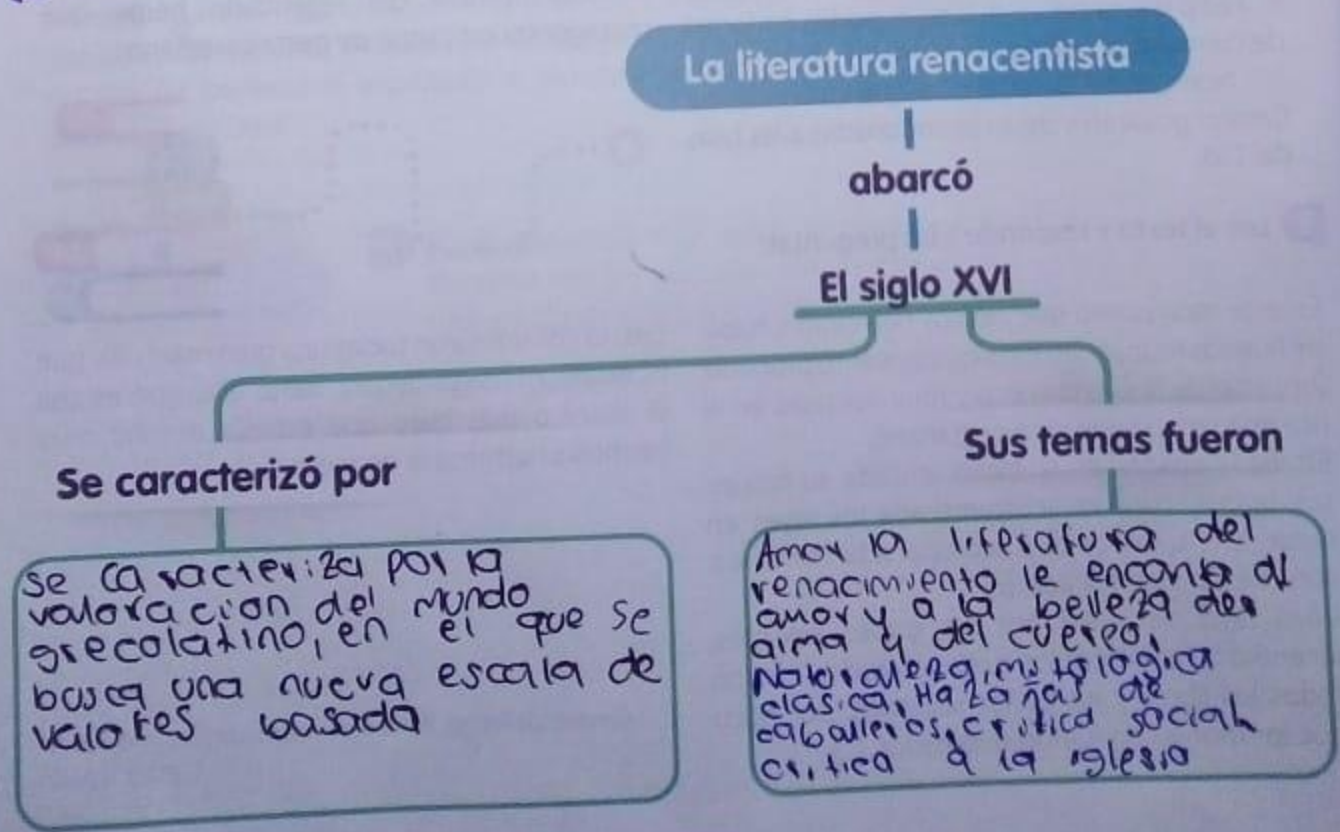 La literatura renacentista
abarcó
El siglo XVI
Se caracterizó por
se caracteriza por la
valoracion del mundo
grecolatino, en el que se
busca una nueva escala de
valores basada
Sus temas fueron
Amor la literatura del
renacimiento le encanta al
amor y a la belleza del
alma y del cuerpo,
Naturaleza, mitologica
clasica, Hazañas de
caballeros, critica social
critica a la iglesia